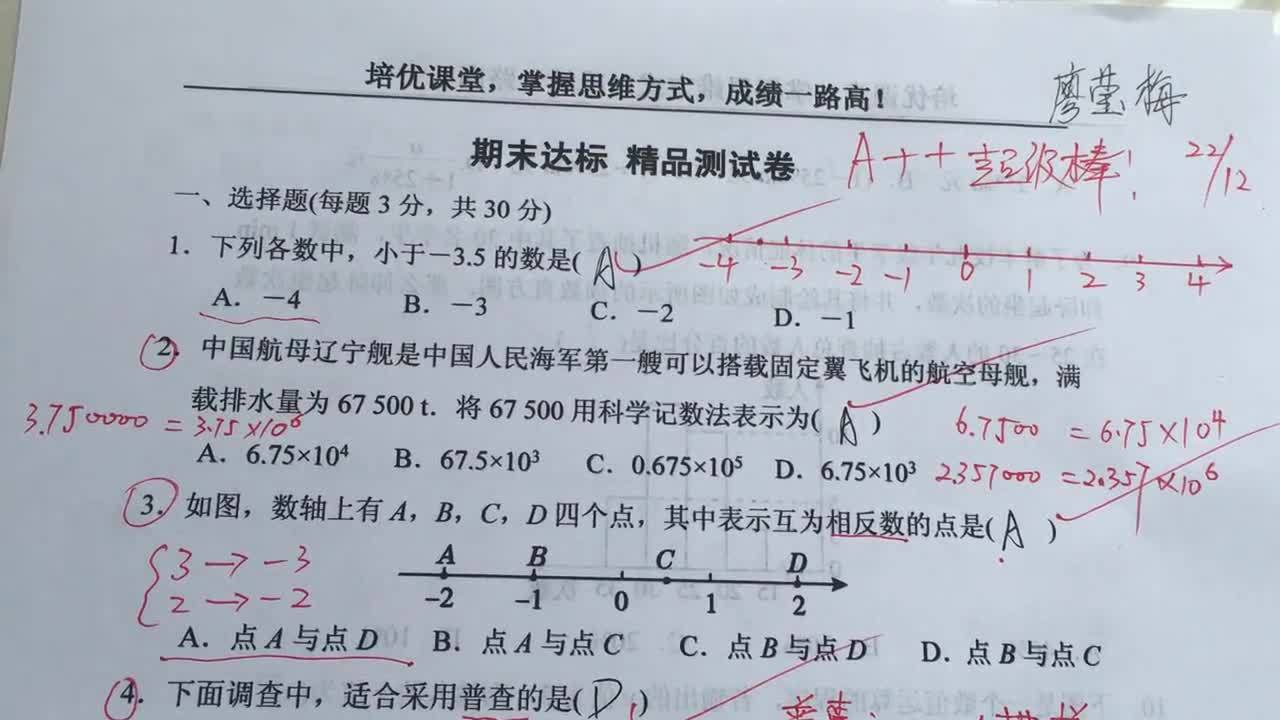 培优课堂，掌握思维方式，成绩一路高！
廖莹梅
期末达标 精品测试卷
A++ 超级棒！ 22/12
一、选择题(每题3分，共30分)
1. 下列各数中，小于－3.5的数是( A )
-4 -3 -2 -1 0 1 2 3 4
A. －4 B. －3 C. －2 D. －1
2. 中国航母辽宁舰是中国人民海军第一艘可以搭载固定翼飞机的航空母舰，满
载排水量为67 500 t. 将67 500用科学记数法表示为( A )
3.750000 = 3.75×10⁶
6.7500 = 6.75×10⁴
A. 6.75×10⁴ B. 67.5×10³ C. 0.675×10⁵ D. 6.75×10³
2357000 = 2.357×10⁶
3. 如图，数轴上有A，B，C，D四个点，其中表示互为相反数的点是( A )
3 → -3
2 → -2
A B C D
－2 －1 0 1 2
A. 点A与点D B. 点A与点C C. 点B与点D D. 点B与点C
4. 下面调查中，适合采用普查的是( D )